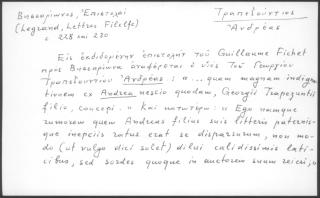 Βησσαρίωνος, Ἐπιστολαὶ
Τραπεζούντιος
(Legrand, Lettres Filelfe)
Ἀνδρέας
σ. 228 καὶ 230
Εἰς ἐκδιδομένην ἐπιστολὴν τοῦ Guillaume Fichet
πρὸς Βησσαρίωνα ἀναφέρεται ὁ υἱὸς τοῦ Γεωργίου
Τραπεζουντίου Ἀνδρέας: «... quem magnam indigna
tionem ex Andrea nescio quodam, Georgii Trapezuntii
filio, concepi. » Καὶ κατωτέρω: « Ego namque
rumorem quem Andreas filius suis litteris paternis-
que ineptiis ratus erat se disparsurum, non mo-
do (ut vulgo dici solet) dilui calidissimis lati-
cibus, sed sordes quoque in auctorem suum reieci, u